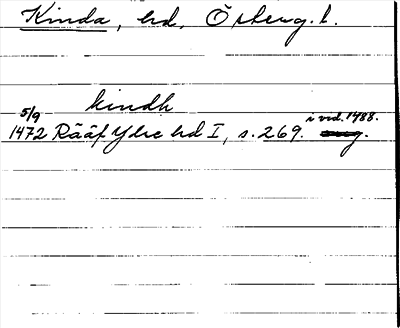 Kinda, hd, Österg. l.
kindh
5/9
1472 Rääf Ydre hd I, s. 269. i vid. 1488.